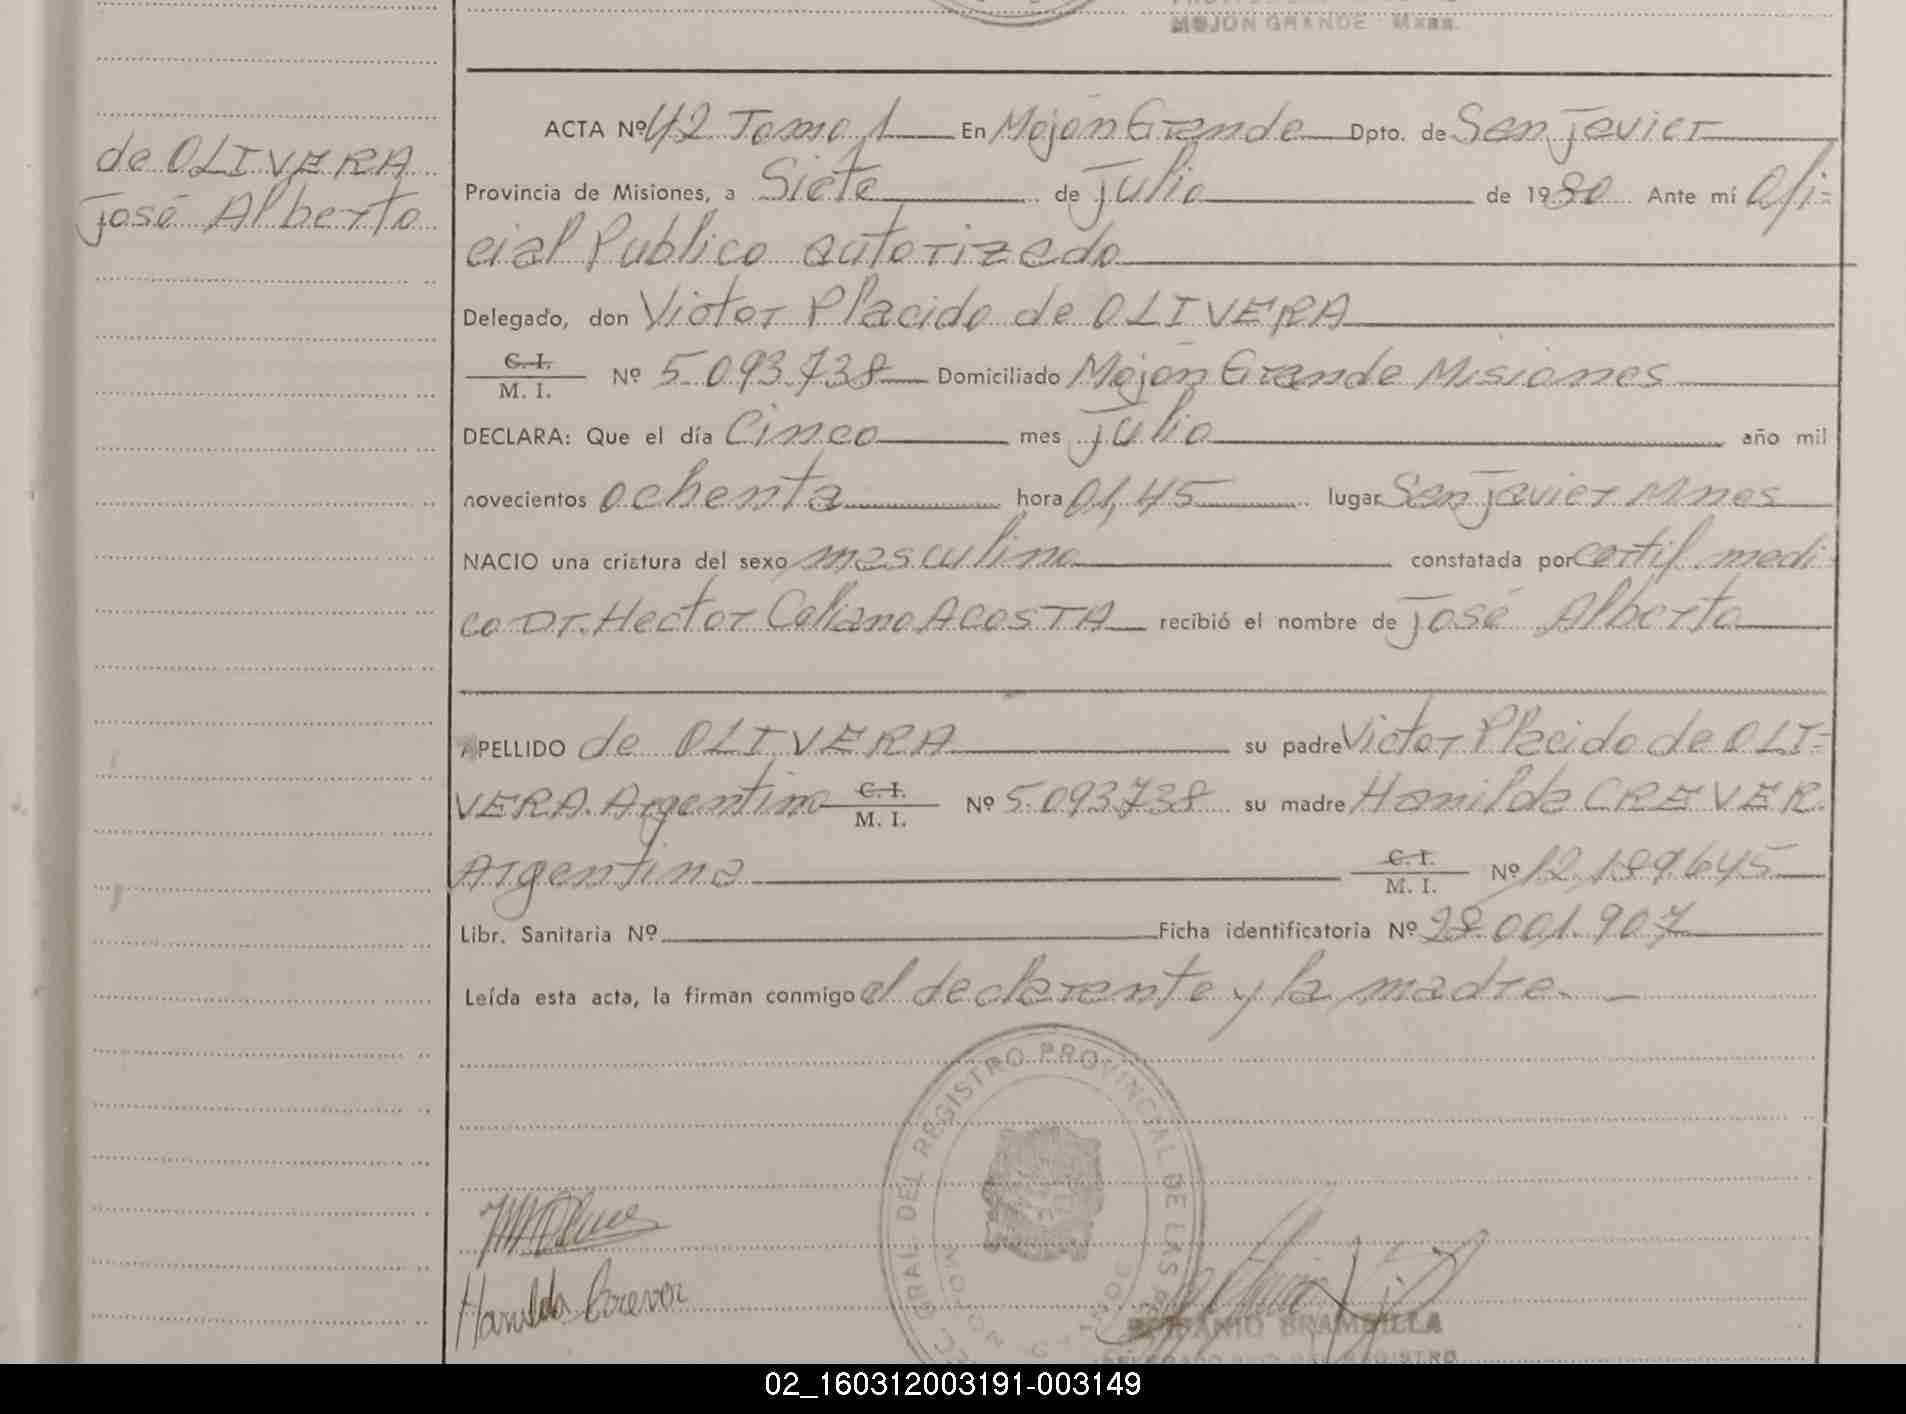 MOJON GRANDE Mnes.
de OLIVERA
José Alberto
ACTA Nº 42 Tomo 1 En Mojón Grande Dpto. de San Javier
Provincia de Misiones, a Siete de Julio de 1980 Ante mí Ofi=
cial Publico autorizado
Delegado, don Victor Placido de OLIVERA
C. I.
M. I. Nº 5.093.738 Domiciliado Mojón Grande Misiones
DECLARA: Que el día Cinco mes Julio año mil
novecientos ochenta hora 01,45 lugar San Javier Mnes
NACIO una criatura del sexo masculino constatada por certif. medi-
co Dr. Hector Celiano ACOSTA recibió el nombre de José Alberto
APELLIDO de OLIVERA su padre Victor Placido de OLI=
VERA. Argentino C. I.
M. I. Nº 5.093.738 su madre Hanilda CREVER.
Argentina C. I.
M. I. Nº 12.189.645
Libr. Sanitaria Nº Ficha identificatoria Nº 28.001.907
Leída esta acta, la firman conmigo el declarante y la madre.
GRAL. DEL REGISTRO PROVINCIAL DE LAS
MOJON GRANDE
Hanilda Crever
BRAMBILLA
DELEGADO REGISTRO
02_160312003191-003149